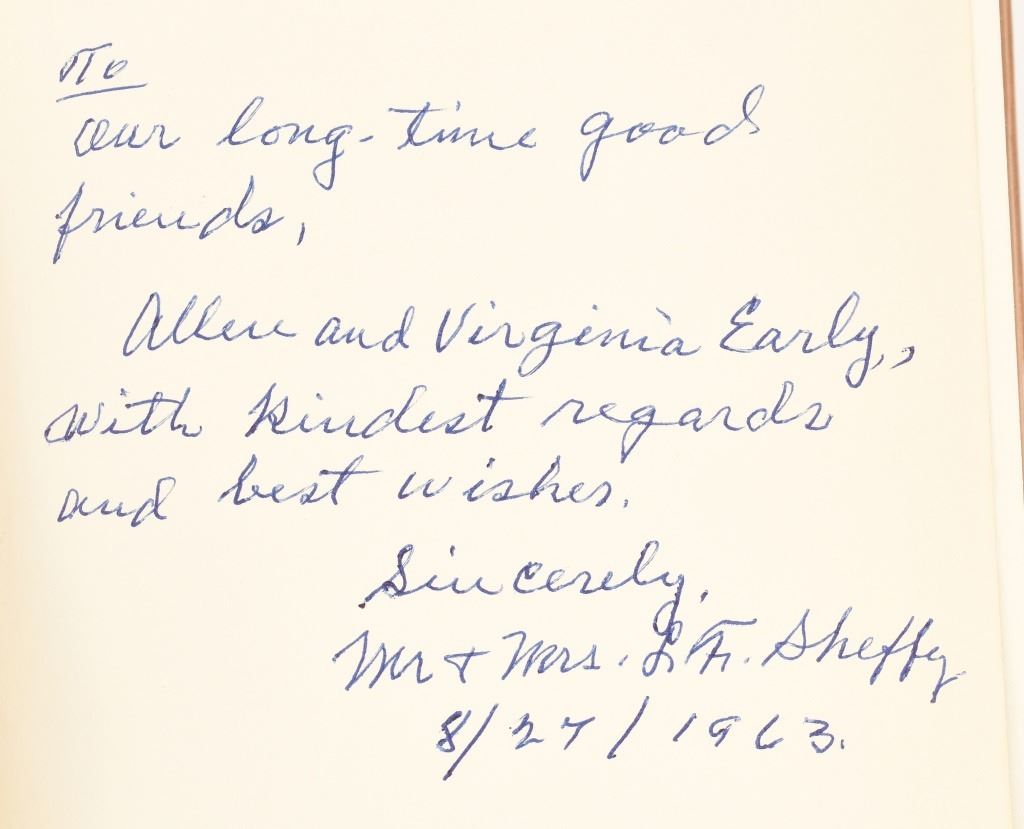 To
our long-time good
friends,
Allen and Virginia Early,
with kindest regards
and best wishes.
Sincerely,
Mr + Mrs. L.F. Sheffy
8/27/1963.